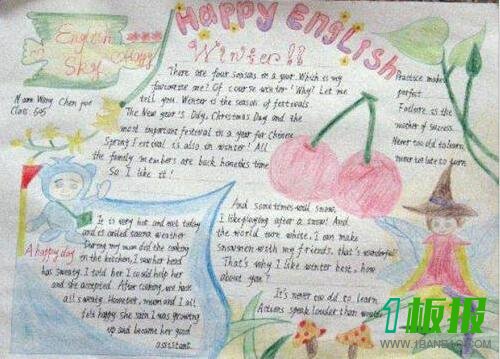 Happy English
English
Sky
Happy
Winter!!
Name Wang Chen
Class 5
There are four seasons in a year. Which is my
favourite one? Of course winter! Why? Let me
tell you. Winter is the season of festivals.
The New year's Day, Christmas Day and the
most important festival in a year for Chinese
Spring Festival is also in winter! All
the family members are back home this time
So I like it!
Practice makes
perfect
Failure is the
mother of success.
Never too old to learn,
never too late to
A happy day
It is very hot and wet today
and is called sauna weather
During my mum did the cooking
in the kitchen, I saw her head
was sweaty. I told her I could help her
and she accepted. After cooking, we have
all sweaty. However, mum and I all
felt happy. she said I was growing
up and became her good
assistant.
And sometimes will snow,
I like after a snow! And
the world turn white, I can make
snowmen with my friends, that's wonderful!
That's why I like winter best, how
about you?
It's never too old to learn
Actions speak louder than words
1板报
WWW.1BANBAO.COM